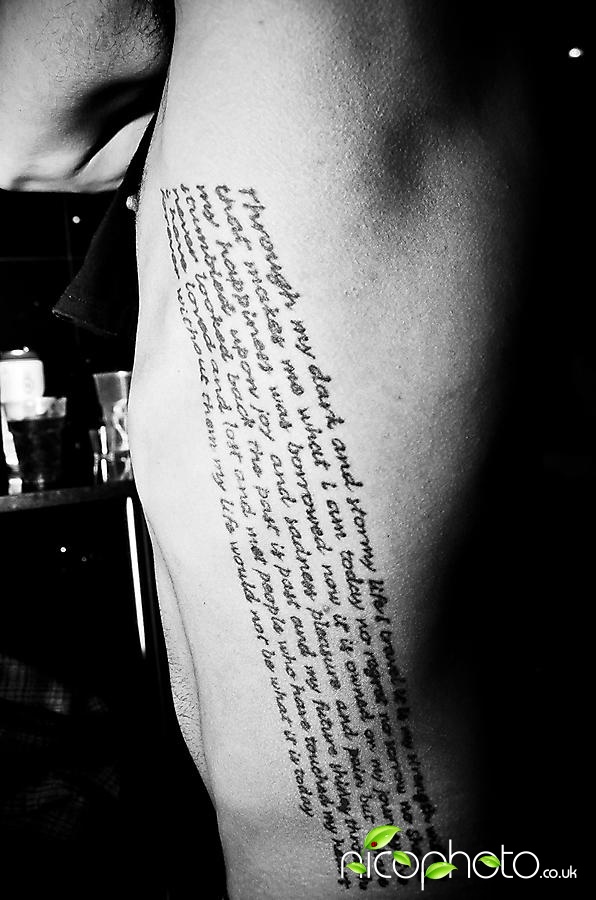 Through my dark and stormy life I travel it is my strength
that makes me what i am today no regret no sorrow no
my happiness was borrowed now it is owned on my
stumbled upon joy and sadness pleasure and pain but
never looked back the past is past and my future
i have loved and lost and met people who have touched my
without them my life would not be what it is today
nicophoto.co.uk